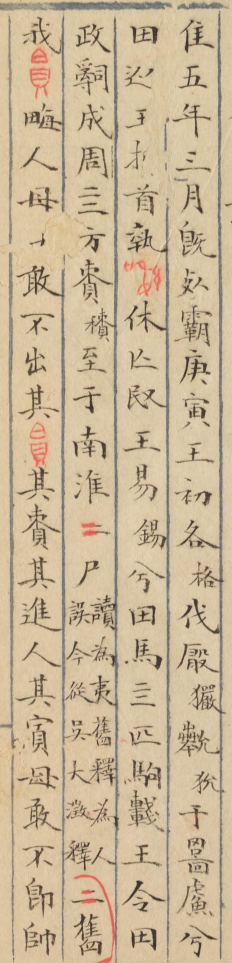 隹五年三月旣霸庚寅王初各格伐厰玁狁于䖒兮
田从王折首執休亡敃王易錫兮田馬亖匹駒車王令田
政嗣成周亖方賷積至于南淮二尸讀為夷舊釋為人誤今從吳大澂釋二舊
我員畮人毋敢不出其員其賷其進人其賔毋敢不卽帥